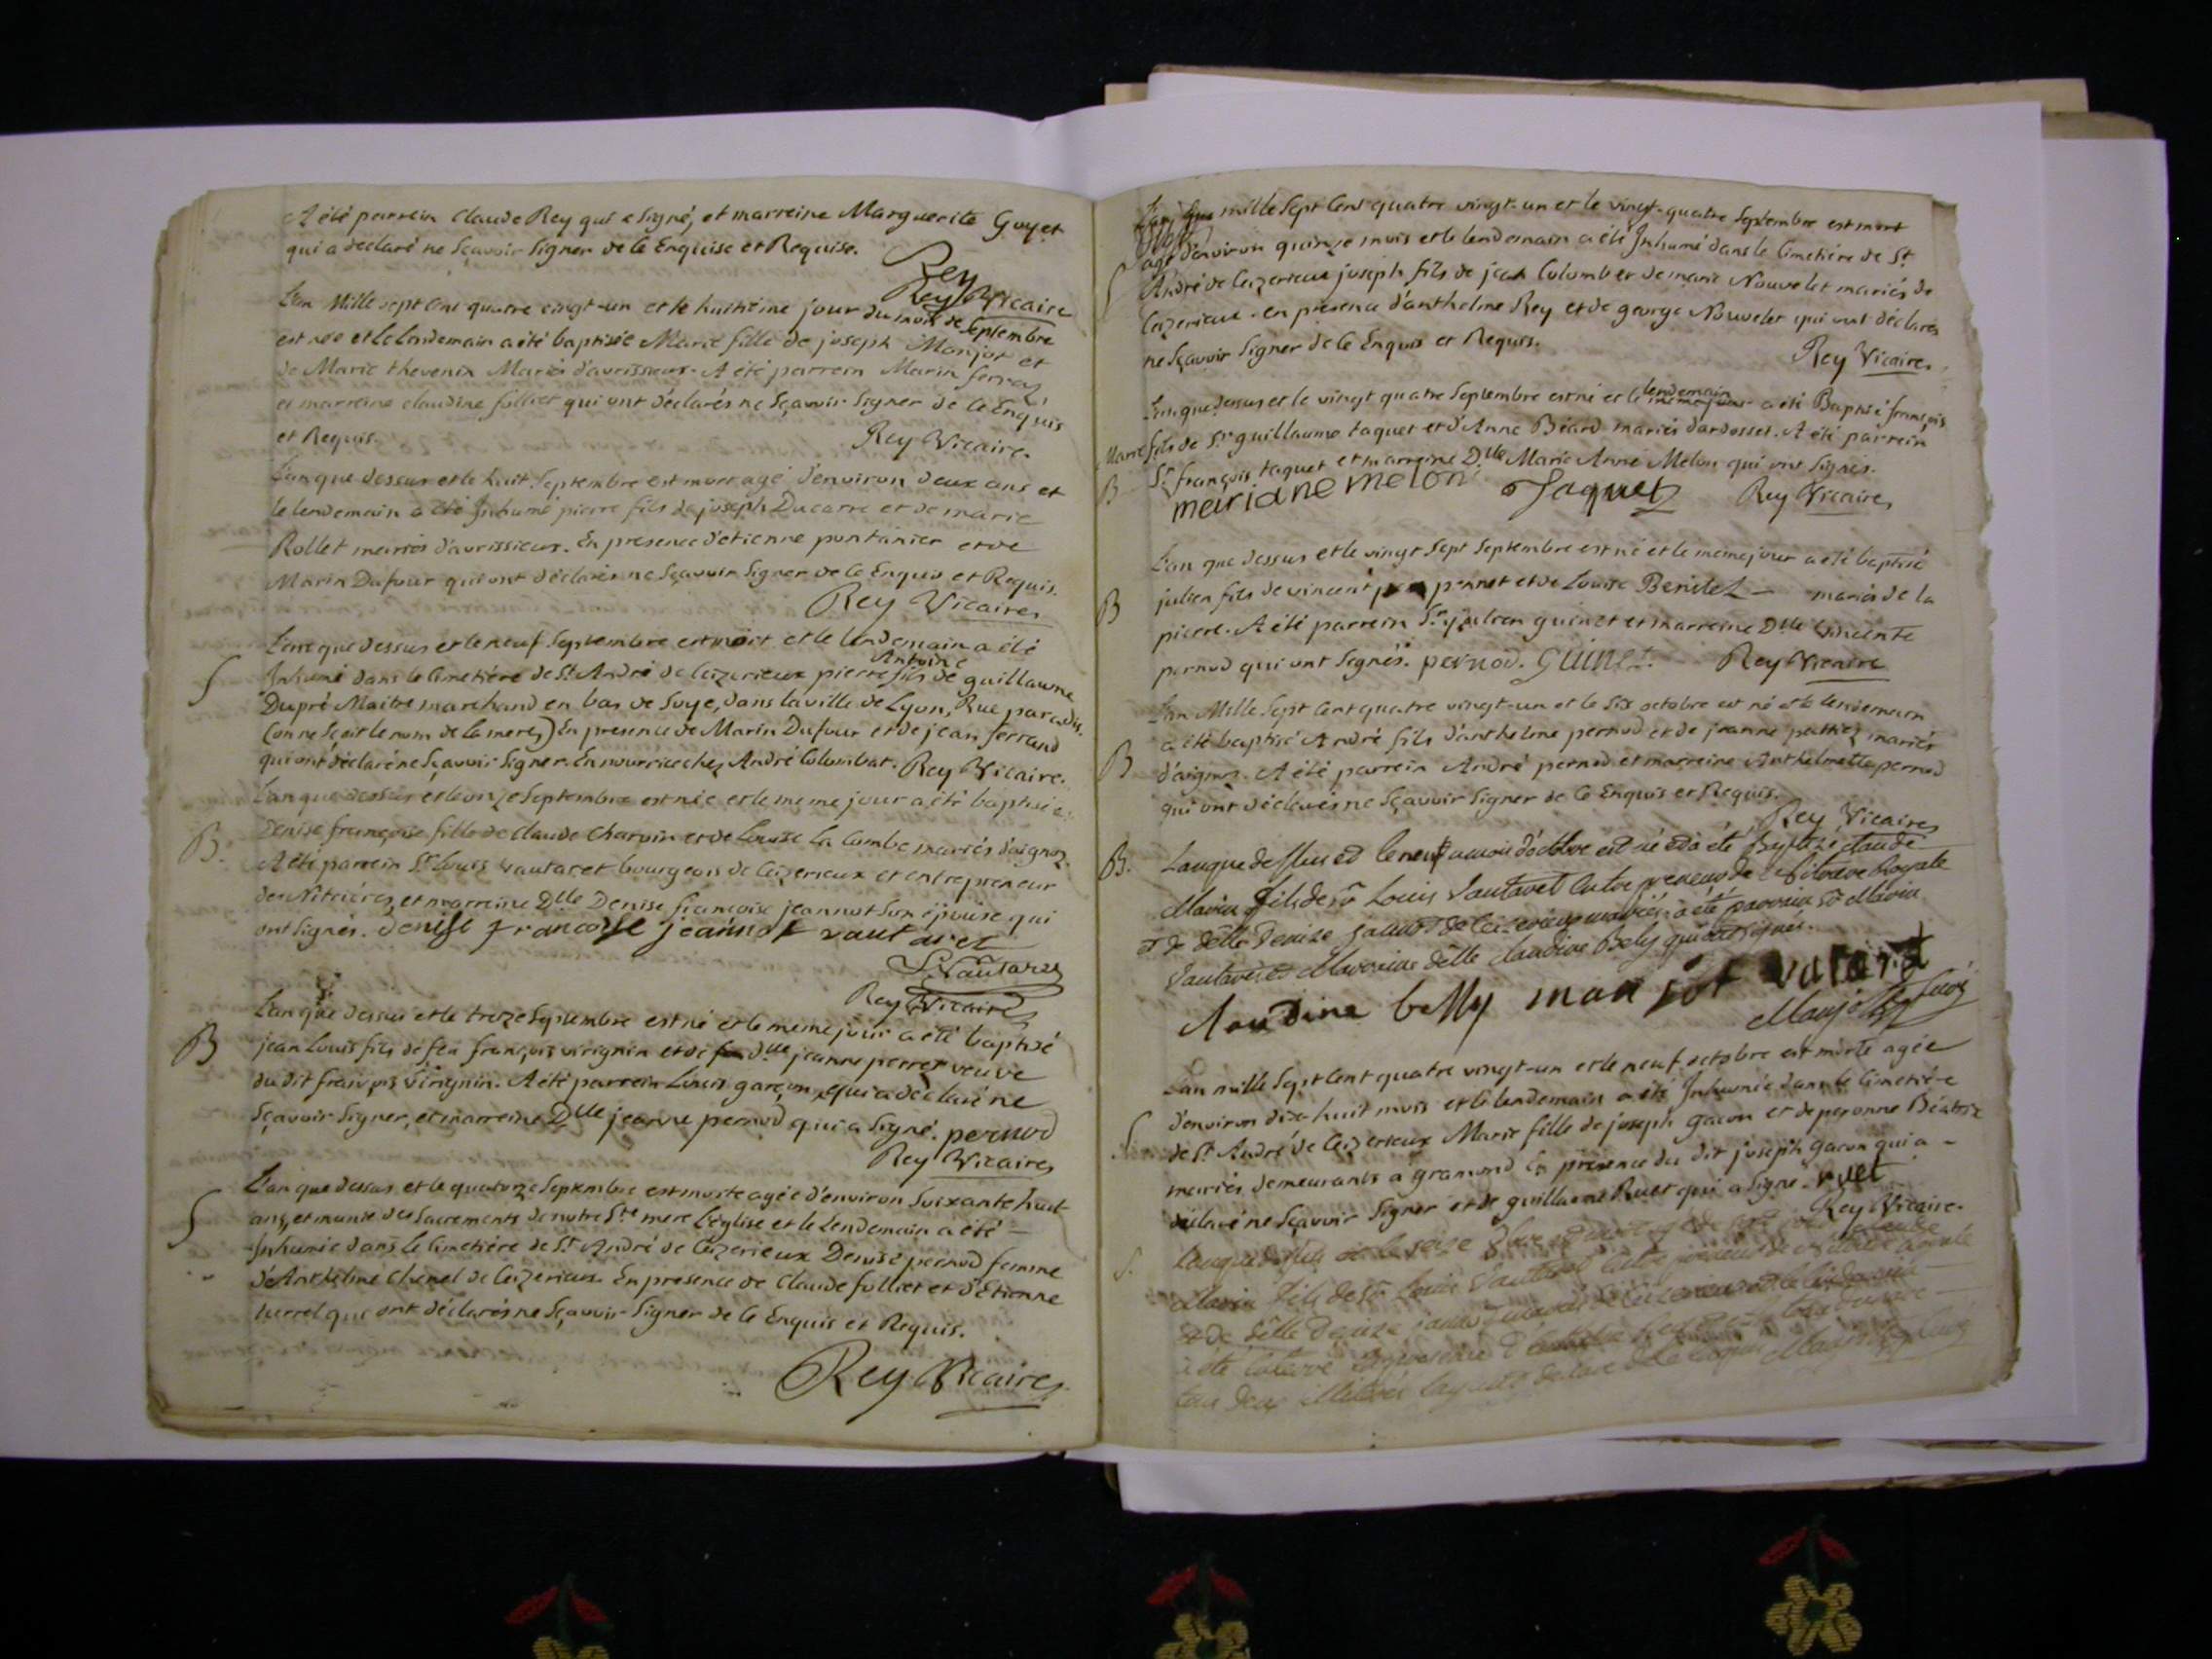 A été parrein Claude Rey qui a signé, et marreine Marguerite Goyet
qui a declaré ne sçavoir signer de ce Enquise et Requise.
Rey
Rey Vicaire
L'an Mille sept cent quatre vingt-un et le huitième jour du mois de septembre
est née et le lendemain a été baptisée Marie fille de joseph Monjot et
de Marie thevenin Mariés d'avrissieux. A été parrein Marin ferraz
et marreine claudine folliet qui ont déclarés ne sçavoir signer de ce Enquis
et Requis. Rey Vicaire.
L'an que dessus et le huit septembre est mort agé d'environ deux ans et
le lendemain a été Inhumé pierre fils de joseph Ducarre et de marie
Rollet mariés d'avrissieux. En presence d'etienne pontanier et de
Marin Dufour qui ont déclarés ne sçavoir signer de ce Enquis et Requis.
Rey Vicaire
L'an que dessus et le neuf septembre est mort et le lendemain a été
S Inhumé dans le Cimetière de St André de Ceizerieux pierre Antoine fils de guillaume
Dupré Maitre marchand en bas de soye, dans la ville de Lyon, Rue paradis.
(on ne sçait le nom de la mere) En presence de Marin Dufour et de jean ferrand
qui ont déclaré ne sçavoir signer. En nourrice chez André Colombat. Rey Vicaire.
L'an que dessus et le onze septembre est née et le meme jour a été baptisée
B. Denise françoise fille de Claude Charvin et de Louise la Combe mariés d'aignoz.
A été parrein Sr Louis vautaret bourgeois de Ceizerieux et entrepreneur
des Nitrières, et marreine Dlle Denise françoise jeannot son épouse qui
ont signés. denise francoise jeannot vautaret
L. Vautaret
Rey Vicaire
L'an que dessus et le treize septembre est né et le meme jour a été baptisé
B jean Louis fils de feu françois virignin et de Dlle jeanne perret veuve
du dit françois Virignin. A été parrein Louis garçon, qui a déclaré ne
sçavoir signer, et marreine Dlle jeanne pernod qui a signé. pernod
Rey Vicaire
L'an que dessus et le quatorze septembre est morte agée d'environ soixante huit
S ans, et munie des sacrements de notre Ste mere l'église et le lendemain a été
Inhumée dans le Cimetière de St André de Ceizerieux Denise pernod femme
d'Anthelme Chenel de Ceizerieux. En presence de Claude folliet et d'Etienne
turrel qui ont déclarés ne sçavoir signer de ce Enquis et Requis.
Rey Vicaire
L'an mille sept cent quatre vingt-un et le vingt-quatre septembre est mort
agé d'environ quinze mois et le lendemain a été Inhumé dans le Cimetière de St
S André de Ceizerieux joseph fils de jean Colomb et de marie Nouvelet mariés de
Ceizerieux. en presence d'anthelme Rey et de george Nouvelet qui ont déclarés
ne sçavoir signer de ce Enquis et Requis. Rey Vicaire
L'an que dessus et le vingt quatre septembre est né et le lendemain a été Baptisé françois
Marie fils de Sr guillaume taquet et d'Anne Béard mariés d'ardosset. A été parrein
B Sr françois taquet et marreine Dlle Marie Anne Melon qui ont signés.
mariane melon Taquet Rey Vicaire
L'an que dessus et le vingt sept septembre est né et le meme jour a été baptisé
B julien fils de vincent pernet et de Louise Benitet mariés de la
pierre. A été parrein Sr julien guinet et marreine Dlle vincente
pernod qui ont signés. pernod. GUINET. Rey Vicaire
L'an Mille sept cent quatre vingt-un et le six octobre est né et le lendemain
a été baptisé André fils d'anthelme pernod et de jeanne mariés
B d'aignoz. A été parrein André pernod et marreine Anthelmette pernod
qui ont déclarés ne sçavoir signer de ce Enquis et Requis.
Rey Vicaire
B. L'an que dessus et le neuf du mois d'octobre est né et a été Baptizé claude
Marin fils de sr Louis Vautaret Entrepreneur de Nitriere Royale
et de delle Denize janot de Ceizerieux mariés. a été parrain sr Marin
Vautaret et Marraine delle Claudine Bely qui ont signés.
claudine belly vutaret
L'an mille sept cent quatre vingt-un et le neuf octobre est morte agée
d'environ dix-huit mois et le lendemain a été Inhumée dans le Cimetière
S. de St André de Ceizerieux Marie fille de joseph gacon et de peronne Béatrix
mariés demeurants a gramond En presence du dit joseph gacon qui a
déclaré ne sçavoir signer et de guillaume Ruet qui a signé. ruet
Rey Vicaire.
S. L'an que dessus et le seize claude
Marin fils de sr Louis Vautaret Entrepreneur de Nitriere Royale
et de delle Denize janot
a été Enterré En presence
tous deux